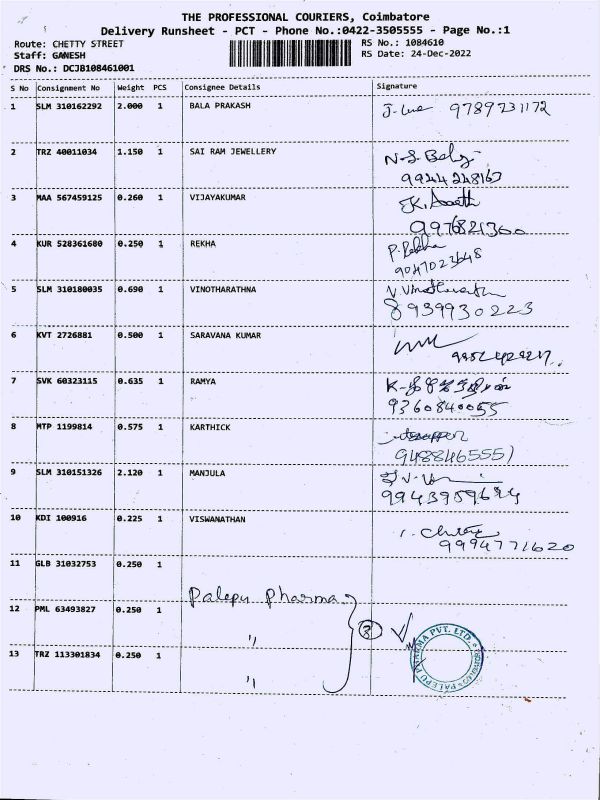 THE PROFESSIONAL COURIERS, Coimbatore
Delivery Runsheet - PCT - Phone No.:0422-3505555 - Page No.:1
Route: CHETTY STREET
RS No.: 1084610
Staff: GANESH
RS Date: 24-Dec-2022
DRS No.: DCJ8108461001
S No Consignment No Weight PCS Consignee Details Signature
1 SLM 310162292 2.000 1 BALA PRAKASH 9789731172
2 TRZ 40011034 1.150 1 SAI RAM JEWELLERY N.S. Balaji
9944248163
3 MAA 567459125 0.260 1 VIJAYAKUMAR
9976821300
4 KUR 528361680 0.250 1 REKHA P. Rekha
9047023648
5 SLM 310180035 0.690 1 VINOTHARATHNA
8939930223
6 KVT 2726881 0.500 1 SARAVANA KUMAR
7 SVK 60323115 0.635 1 RAMYA
9360840055
8 MTP 1199814 0.575 1 KARTHICK
9488465551
9 SLM 310151326 2.120 1 MANJULA
10 KDI 100916 0.225 1 VISWANATHAN
9994771620
11 GLB 31032753 0.250 1
Palepu Pharma
12 PML 63493827 0.250 1 "
3
13 TRZ 113301834 0.250 1 "
PALEPU PHARMA PVT. LTD.